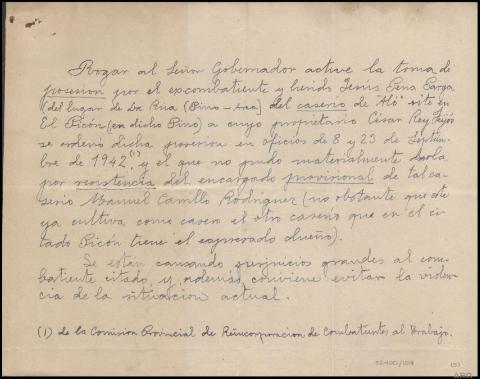 Rogar al Señor Gobernador active la toma de
posesion por el excombatiente y herido Jesus Pena Parga
(del lugar de Da Riia (Pino - Arca) del caserio de "Aló" sito en
El Picón (en dicho Pino) a cuyo propietario César Rey Feijóo
se ordenó dicha posesion en oficios de 8 y 23 de Septiem-
bre de 1942,(1) y el que no pudo materialmente darla
por resistencia del encargado provisional de tal ca-
serio Manuel Carrillo Rodriguez (no obstante que este
ya cultiva como casero el otro caserio que en el ci-
tado Picón tiene el expresado dueño).
Se están causando perjuicios grandes al com-
batiente citado y, además, conviene evitar la violen-
cia de la situacion actual.
(1) de la Comision Provincial de Reincorporacion de Combatientes al Trabajo.